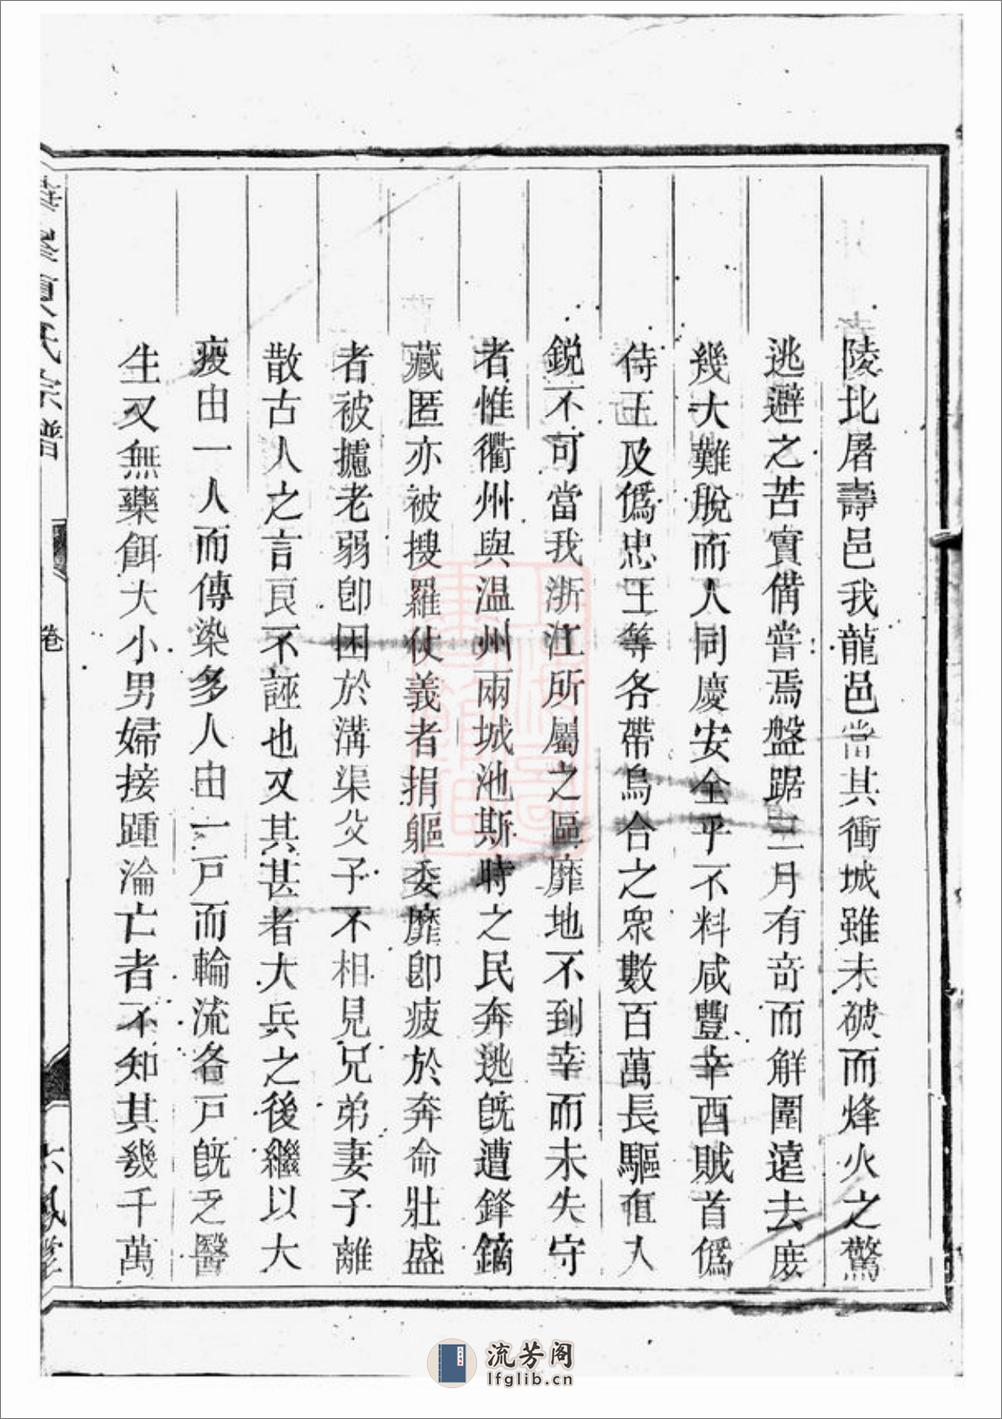 陵北屠壽邑我龍邑當其衝城雖未破而烽火之驚
逃避之苦實備嘗焉盤踞三月有奇而解圍遠去庶
幾大難脫而人同慶安全乎不料咸豐辛酉賊首僞
侍王及僞忠王等各帶烏合之眾數百萬長驅直入
銳不可當我浙江所屬之區靡地不到幸而未失守
者惟衢州與温州兩城池斯時之民奔逃旣遭鋒鏑
藏匿亦被搜羅仗義者捐軀委靡卽疲於奔命壯盛
者被擄老弱卽困於溝渠父子不相見兄弟妻子離
散古人之言良不誣也又其甚者大兵之後繼以大
疫由一人而傳染多人由一戸而輪流各戸旣乏醫
生又無藥餌大小男婦接踵淪亡者不知其幾千萬
宗譜
卷
流芳阁
lfglib.cn